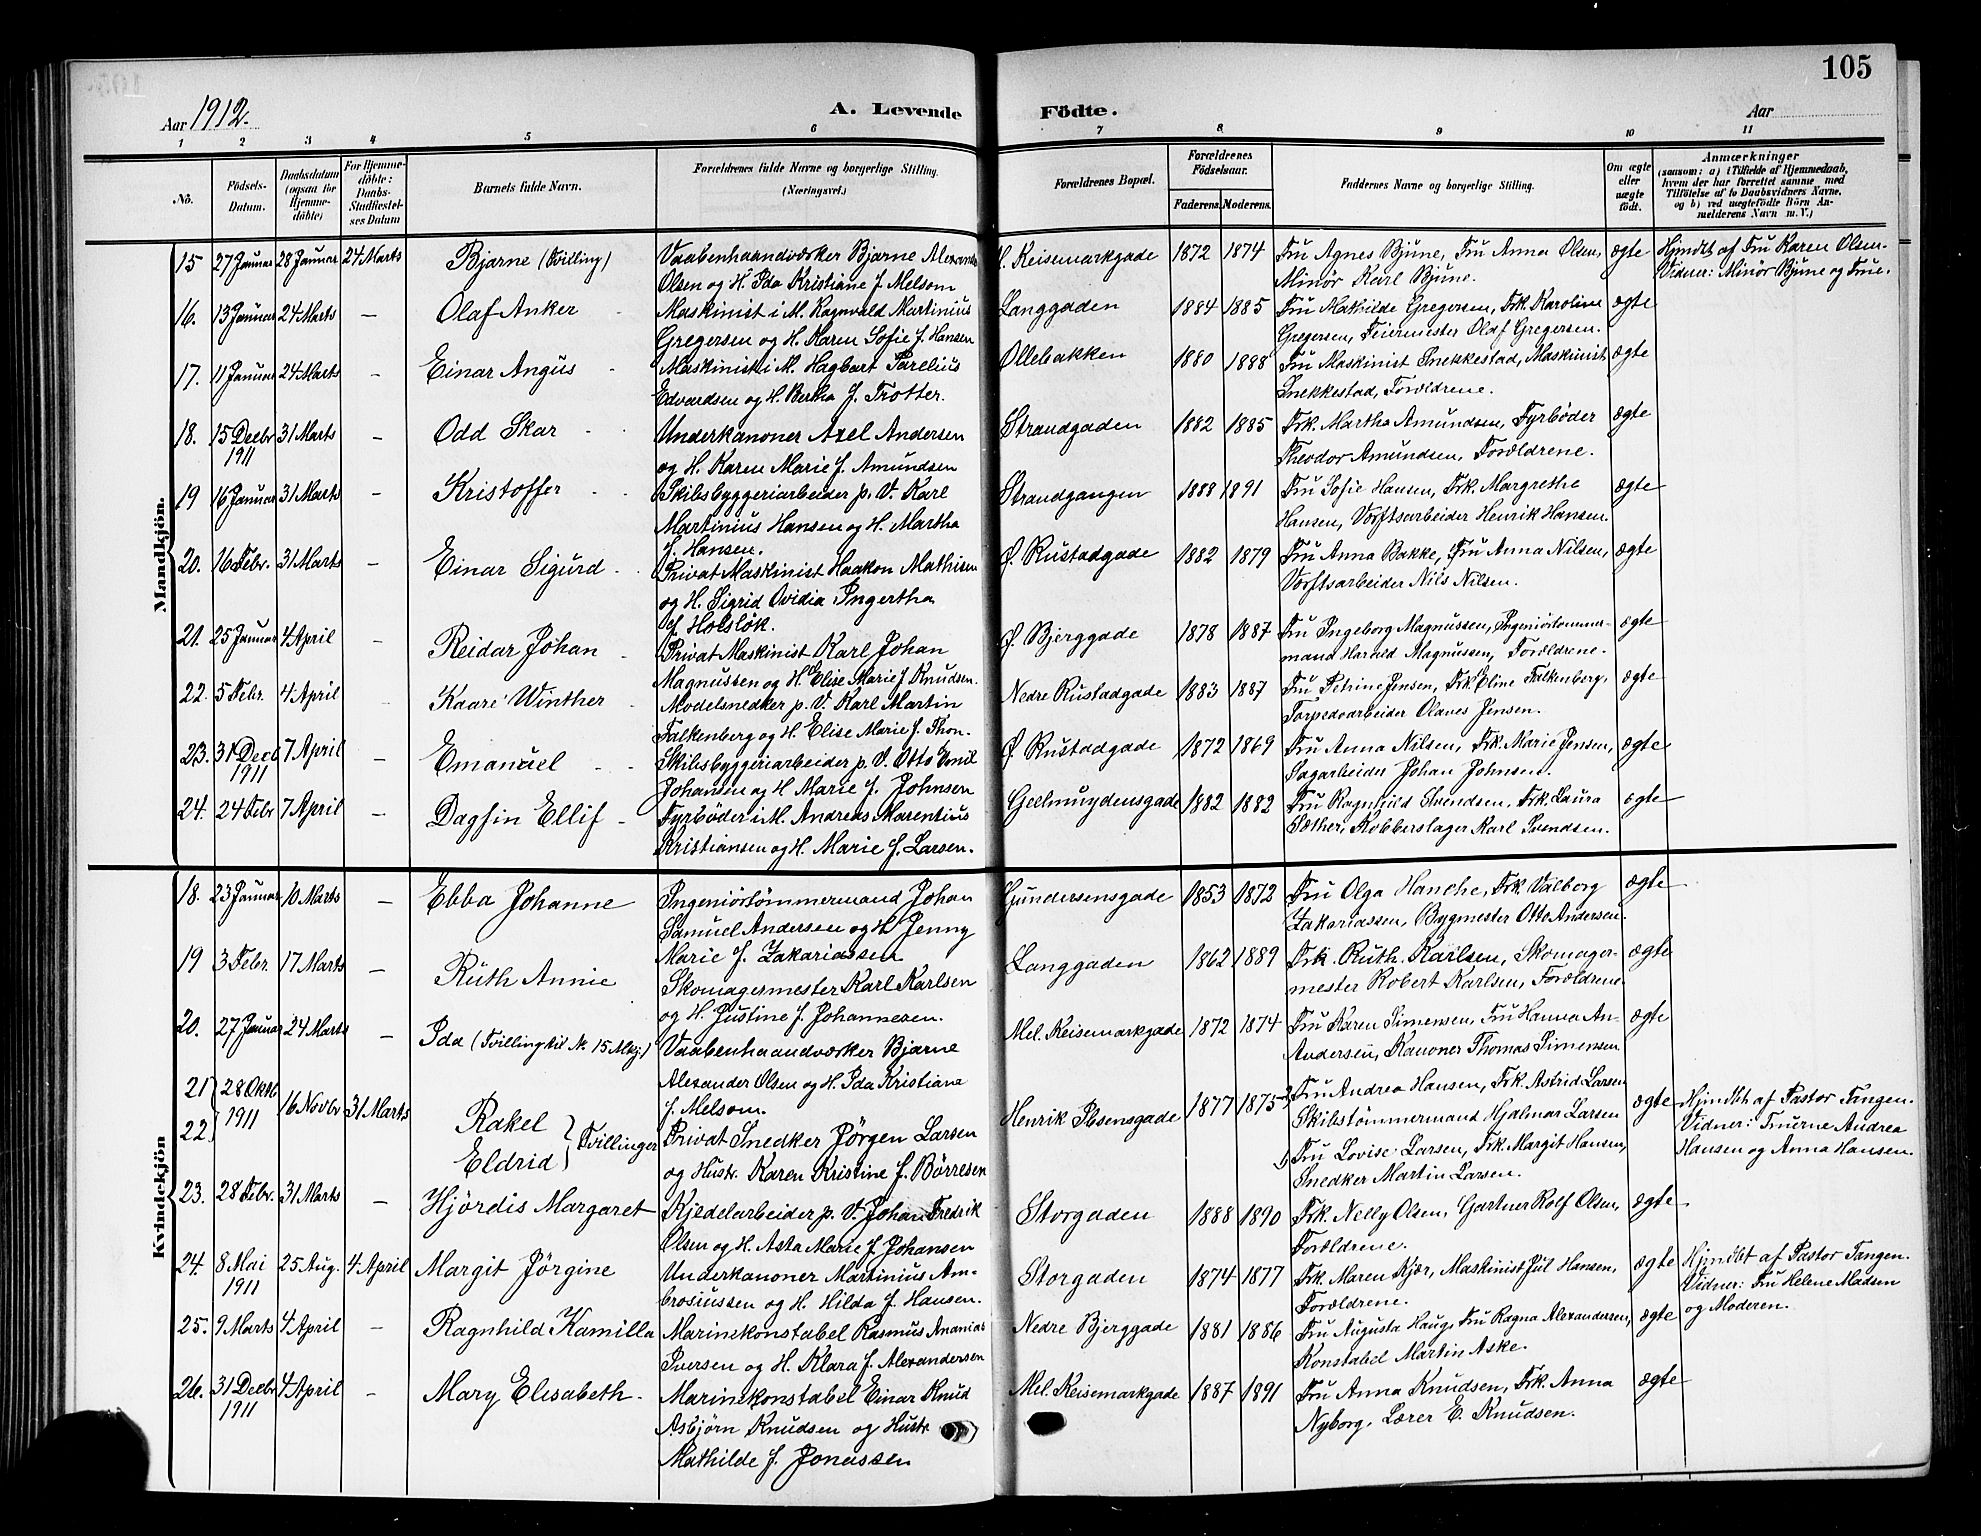 105
Aar 1912.
A. Levende Födte.
Aar
1 2 3 4 5 6 7 8 9 10 11
Nö.
Födsels-Datum.
Daabsdatum (ogsaa for Hjemme-döbte)
For Hjemme-döbte: Daabs-Stadfæstel-ses Datum
Barnets fulde Navn.
Forældrenes fulde Navne og borgerlige Stilling. (Næringsvei.)
Forældrenes Bopæl.
Forældrenes Födselsaar.
Faderens. Moderens.
Faddernes Navne og borgerlige Stilling.
Om ægte eller uægte födt.
Anmærkninger
(saasom: a) i Tilfælde af Hjemmedaab,
hvem der har forrettet samme med
Tilföielse af to Daabsvidners Navne,
og b) ved uægtefödte Börn An-
melderens Navn m. V.)
Mandkjön.
15 27 Januar 28 Januar 24 Marts Bjarne (Tvilling) Vaabenhaandværker Bjarne Alexander M. Keisemarkgade 1872 1874 Fru Agnes Bjune, Fru Anna Olsen, ægte Hjmdbt af Fru Karen Olsen.
Olsen og H. Ida Kristiane f. Melsom Minör Karl Bjune. Vidner: Minör Bjune og Frue.
16. 13 Januar 24 Marts — Olaf Anker Maskinist i M. Ragnvald Martinius Langgaden 1884 1885 Fru Mathilde Gregersen, Frk. Karoline ægte
Gregersen og H. Karen Sofie f. Hansen Gregersen, Feiermester Olaf Gregersen.
17. 11 Januar 24 Marts — Einar Angus Maskinist i M. Hagbart Parelius Ollebakken 1880 1888 Fru Maskinist Snekkestad, Maskinist ægte
Edvardsen og H. Bertha f. Trotter. Snekkestad, Forældrene.
18. 15 Decbr 31 Marts — Odd Skar Underkanoner Axel Andersen Strandgaden 1882 1885 Frk. Martha Amundsen, Fyrbøder ægte
1911 og H. Karen Marie f. Amundsen Theodor Amundsen, Forældrene.
19 16 Januar 31 Marts — Kristoffer Skibsbyggeriarbeider p. V. Karl Strandgangen 1888 1891 Fru Sofie Hansen, Frk. Margrethe ægte
Martinius Hansen og H. Martha Hansen, Værftsarbeider Henrik Hansen.
f. Hansen.
20. 16 Febr. 31 Marts — Einar Sigurd Privat Maskinist Haakon Mathisen Ø. Rustadgade 1882 1879 Fru Anna Bakke, Fru Anna Nilsen, ægte
og H. Sigrid Ovidia Ingertha Værftsarbeider Nils Nilsen.
f. Holsløk.
21. 25 Januar 4 April — Reidar Johan Privat Maskinist Karl Johan Ø. Bjerggade 1878 1887 Fru Ingeborg Magnussen, Ingeniörtömmer- ægte
Magnussen og H. Elise Marie f. Knudsen. mand Harald Magnussen, Forældrene.
22. 5 Febr. 4 April — Kaare Winther Modelsnedker p. V. Karl Martin Nedre Rustadgade 1883 1887 Fru Petrine Jensen, Frk. Eline Falkenberg, ægte
Falkenberg og H. Elise Marie f. Thon. Torpedoarbeider Olaves Jensen.
23. 31 Decb 7 April — Emanuel Skibsbyggeriarbeider p. V. Otto Emil Ø Rustadgade 1872 1869 Fru Anna Nilsen, Frk. Marie Jensen, ægte
1911 Johansen og H. Marie f. Johnsen Sagarbeider Johan Johnsen.
24. 24 Febr 7 April — Dagfin Ellif Fyrbøder i M. Andreas Marentius Geelmuydensgade 1882 1882 Fru Ragnhild Svendsen, Frk. Laura ægte
Kristiansen og H. Marie f. Larsen. Sæther, Kobberslager Karl Svendsen.
Kvindekjön
18. 23 Januar 10 Marts — Ebba Johanne Ingeniörtömmermand Johan Gundersensgade 1853 1872 Fru Olga Hanche, Frk. Valborg ægte
Samuel Andersen og H. Jenny Zakariassen, Bygmester Otto Andersen.
Marie f. Zakariassen
19 3 Febr. 17 Marts — Ruth Annie Skomagermester Karl Karlsen Langgaden 1862 1889 Frk. Ruth Karlsen, Skomager- ægte
og H. Justine f. Johannesen. mester Robert Karlsen, Forældrene.
20. 27 Januar 24 Marts — Ida (Tvilling til No 15 Mkj.) Vaabenhaandværker Bjarne Mel. Keisemarkgade 1872 1874 Fru Karen Simensen, Fru Hanna An- ægte
Alexander Olsen og H. Ida Kristiane Andersen, Kanoner Thomas Simensen
f. Melsom.
21 22 28 Oktb 1911 16 Novbr 31 Marts Rakel Eldrid } Tvillinger Privat Snedker Jörgen Larsen Henrik Ibsensgade 1877 1875 Fru Andrea Hansen, Frk. Astrid Larsen ægte Hjmdbt af Pastor Tangen.
og Hustr. Karen Kristine f. Børresen Skibstömmermand Hjalmar Larsen Vidner: Fruerne Andrea
Fru Lovise Larsen, Frk. Margit Hansen, Hansen og Anna Hansen.
Snedker Martin Larsen.
23. 28 Febr. 31 Marts — Hjördis Margaret Kjedelarbeider p. V. Johan Fredrik Storgaden 1888 1890 Frk. Nelly Olsen, Gartner Rolf Olsen, ægte
Olsen og H. Asta Marie f. Johansen Forældrene.
24. 8 Mai 25 Aug. 4 April Margit Jörgine Underkanoner Martinius Am- Storgaden 1874 1877 Frk. Maren Kjær, Maskinist Jul Hansen, ægte Hjmdbt af Pastor Tangen.
1911 brosiussen og H. Hilda f. Hansen. Forældrene. Vidner: Fru Helene Madsen
og Moderen.
25. 9 Marts 4 April — Ragnhild Kamilla Marinekonstabel Rasmus Ananias Nedre Bjerggade 1881 1886 Fru Augusta Haug, Fru Ragna Alexandersen, ægte
Iversen og H. Klara f. Alexandersen Konstabel Martin Aske.
26. 31 Decbr 4 April — Mary Elisabeth Marinekonstabel Einar Knud Mel. Keisemarkgade 1887 1891 Fru Anna Knudsen, Frk. Anna ægte
1911 Asbjörn Knudsen og Hustr Nyborg, Lærer E. Knudsen.
Mathilde f. Jonassen